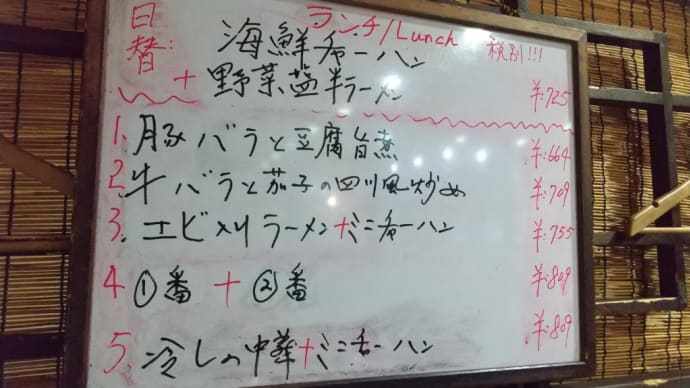 日替 ランチ/Lunch 税別!!!
海鮮チャーハン
+野菜塩半ラーメン ¥:725
1. 豚バラと豆腐旨煮 ¥:664
2. 牛バラと茄子の四川風炒め ¥:709
3. エビ入りラーメン+ミニチャーハン ¥:755
4 ①番 + ②番 ¥:809
5. 冷しの中華+ミニチャーハン ¥:809